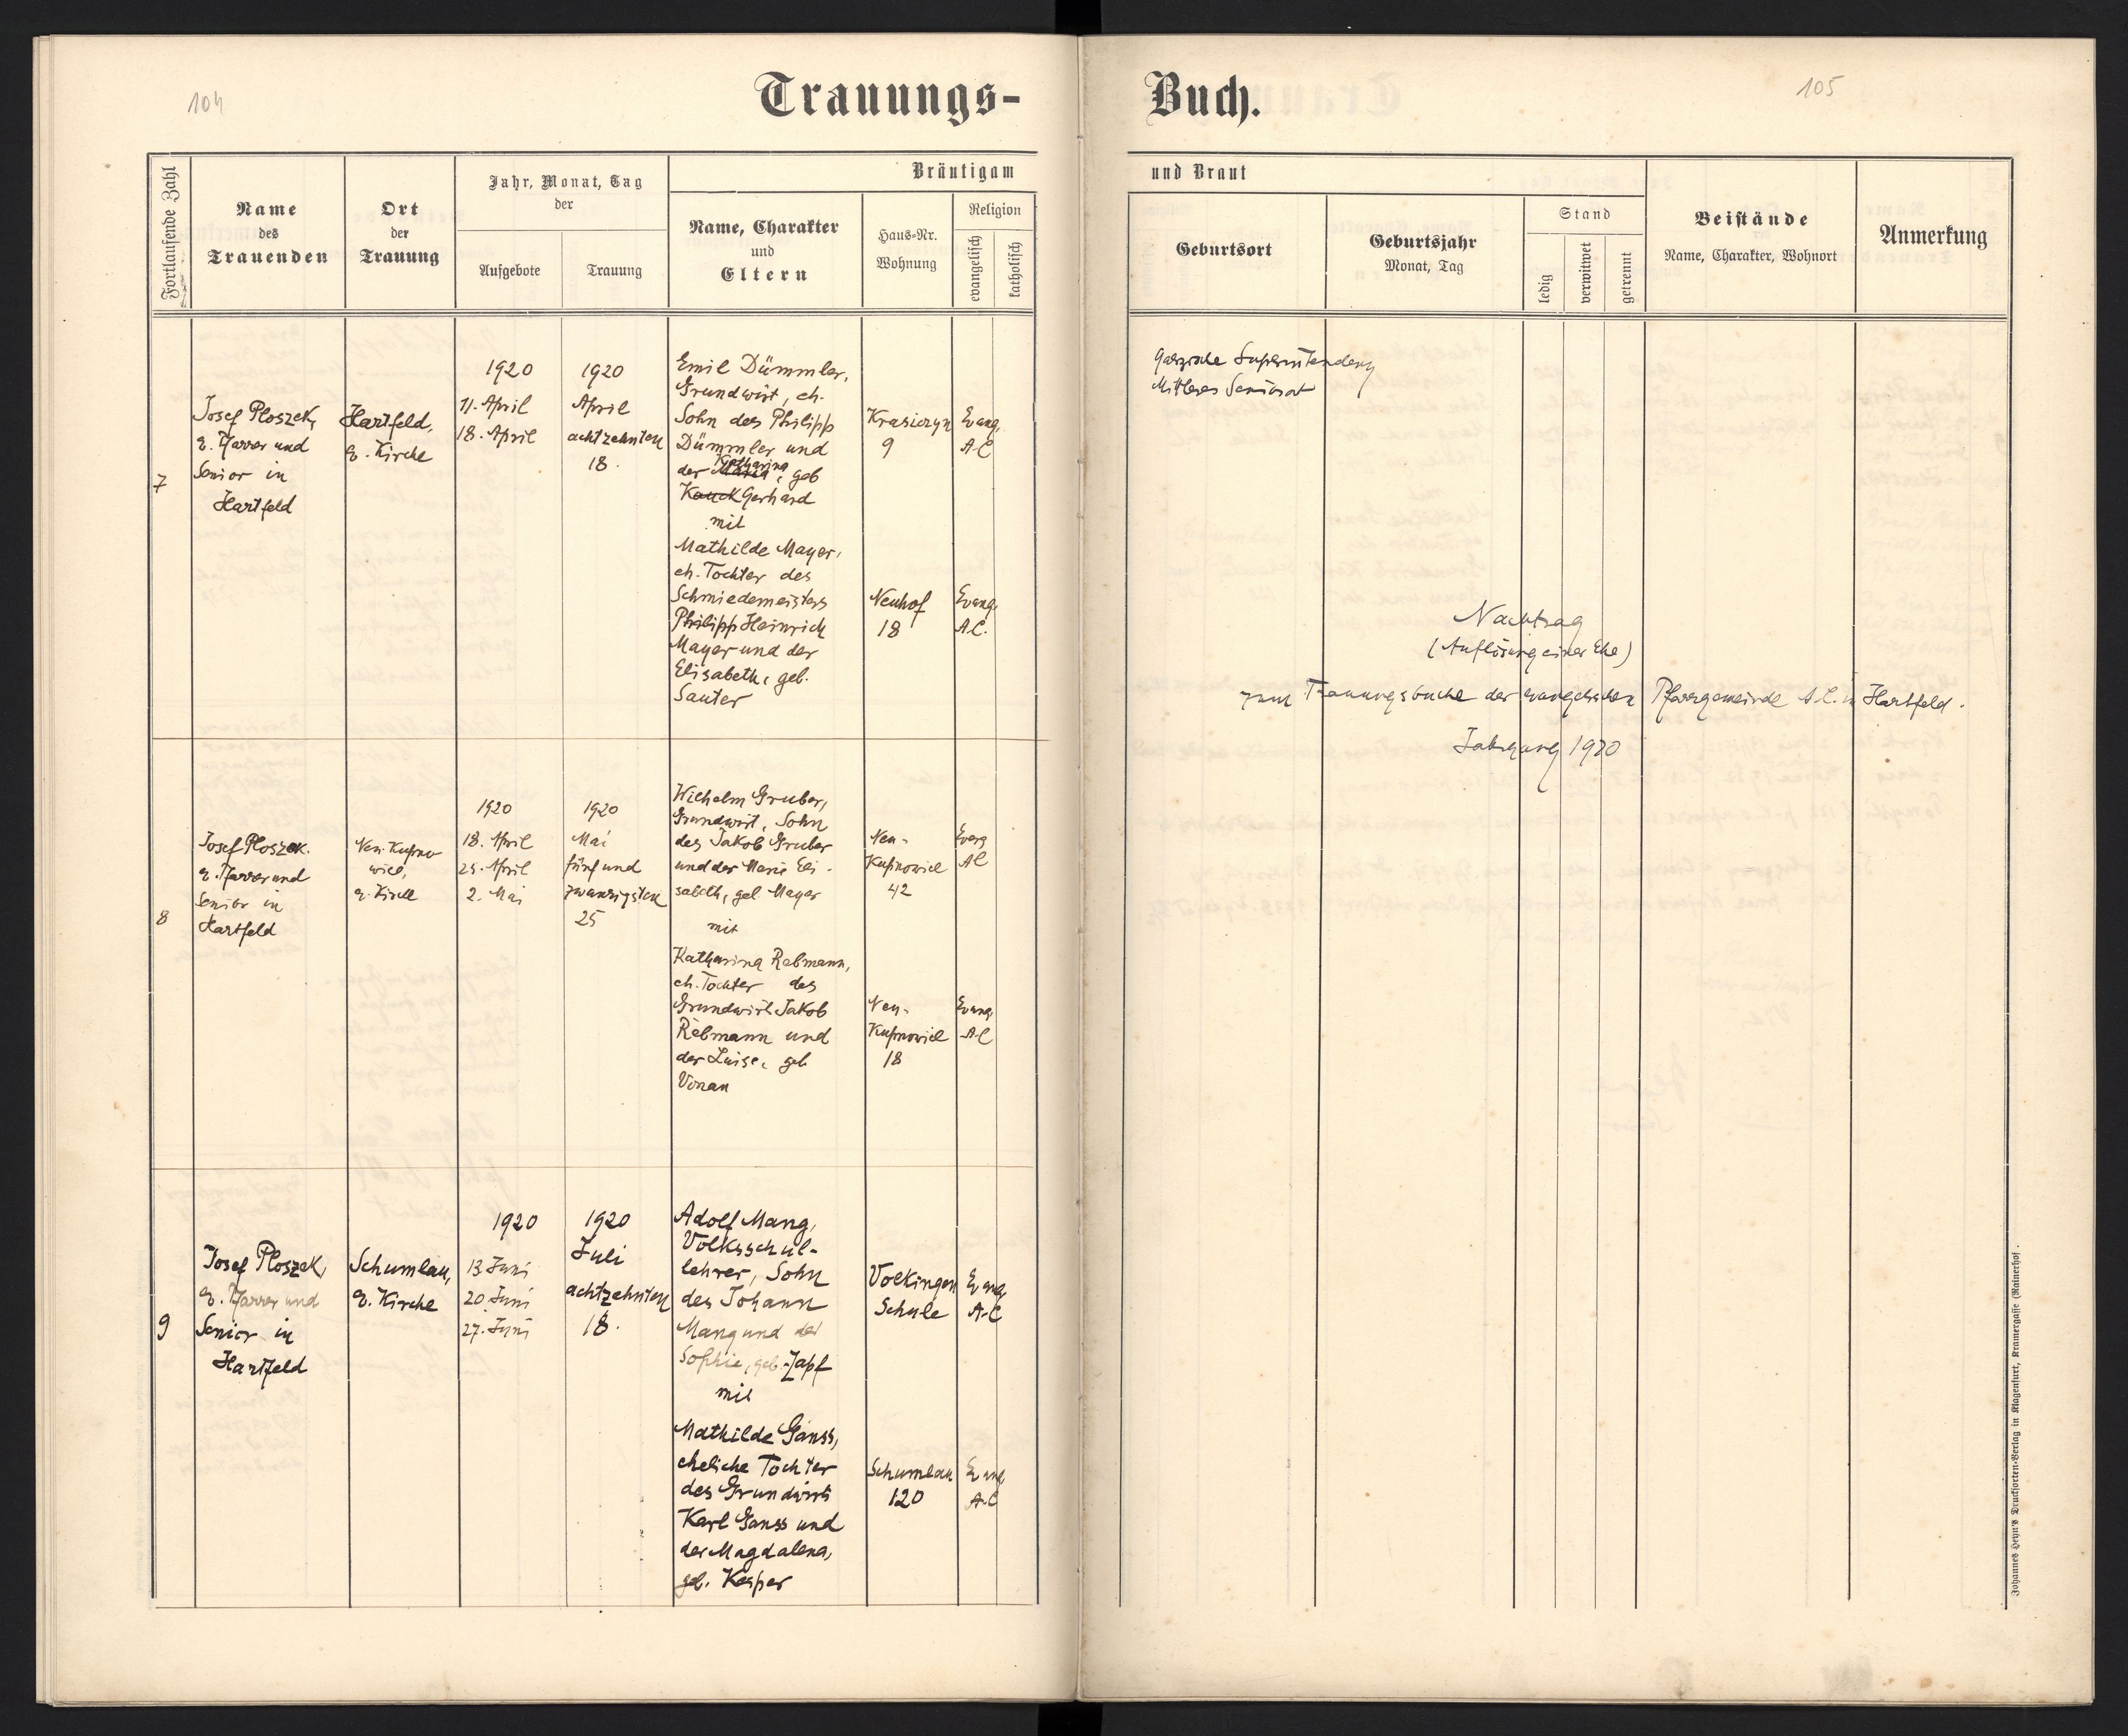 104
Trauungs-
Fortlaufende Zahl
Name
des
Trauenden
Ort
der
Trauung
Jahr, Monat, Tag
der
Aufgebote
Trauung
Bräutigam
Name, Charakter
und
Eltern
Haus-Nr.
Wohnung
Religion
evangelisch
katholisch
7
Josef Ploszek,
e. Pfarrer und
Senior in
Hartfeld
Hartfeld,
e. Kirche
1920
11. April
18. April
1920
April
achtzehnten
18.
Emil Dümmler,
Grundwirt, eh.
Sohn des Philipp
Dümmler und
Katharina
der Maria, geb
Kauck Gerhard
mit
Mathilde Mayer,
eh. Tochter des
Schmiedemeisters
Philipp Heinrich
Mayer und der
Elisabeth, geb.
Sauter
Krasiczyn
9
Evang.
A.C
Neuhof
18
Evang.
A.C.
8
Josef Ploszek.
e. Pfarrer und
Senior in
Hartfeld
Neu-Kupno
wice,
e. Kirche
1920
18. April
25. April
2. Mai
1920
Mai
fünf und
zwanzigsten
25
Wilhelm Gruber,
Grundwirt, Sohn
des Jakob Gruber
und der Marie Eli-
sabeth, geb. Mayer
mit
Katharina Rebmann,
eh. Tochter des
Grundwirts Jakob
Rebmann und
der Luise, geb
Vonau
Neu-
Kupnowice
42
Evang
AC
Neu-
Kupnowice
18
Evang.
A.C
9
Josef Ploszek,
e. Pfarrer und
Senior in
Hartfeld
Schumlau,
e. Kirche
1920
13. Juni
20. Juni
27. Juni
1920
Juli
achtzehnten
18.
Adolf Mang,
Volksschul-
lehrer, Sohn
des Johann
Mang und der
Sophie, geb. Zapf
mit
Mathilde Ganss,
eheliche Tochter
des Grundwirts
Karl Ganss und
der Magdalena,
geb. Kesper
Volkingen
Schule
Evang
A.C
Schumlau
120
Evang
A.C
105
Buch.
und Braut
Geburtsort
Geburtsjahr
Monat, Tag
Stand
ledig
verwitwet
getrennt
Beistände
Name, Charakter, Wohnort
Anmerkung
Galizische Superintendenz
Mittleres Seniorat
Nachtrag
(Auflösung einer Ehe)
zum Trauungsbuche der evangelischen Pfarrgemeinde A.C. in Hartfeld.
Jahrgang 1920
Johannes Heyn's Drucksorten-Verlag in Klagenfurt, Kramergasse (Rainerhof).